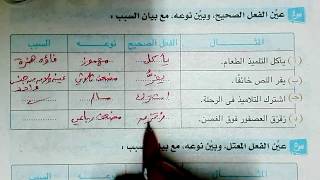 عيّن الفعل الصحيح، وبيّن نوعه، مع بيان السبب :
المثال الفعل الصحيح نوعه السبب
(أ) يأكل التلميذ الطعام. يأكل مهموز فاؤه همزة
(ب) يفر اللص خائفًا. يفرُّ مضعف ثلاثي
(ج) اشترك التلاميذ في الرحلة. اشترك سالم
(د) زقزق العصفور فوق الغصن. مضعف رباعي
عيّن الفعل المعتل، وبيّن نوعه، مع بيان السبب :